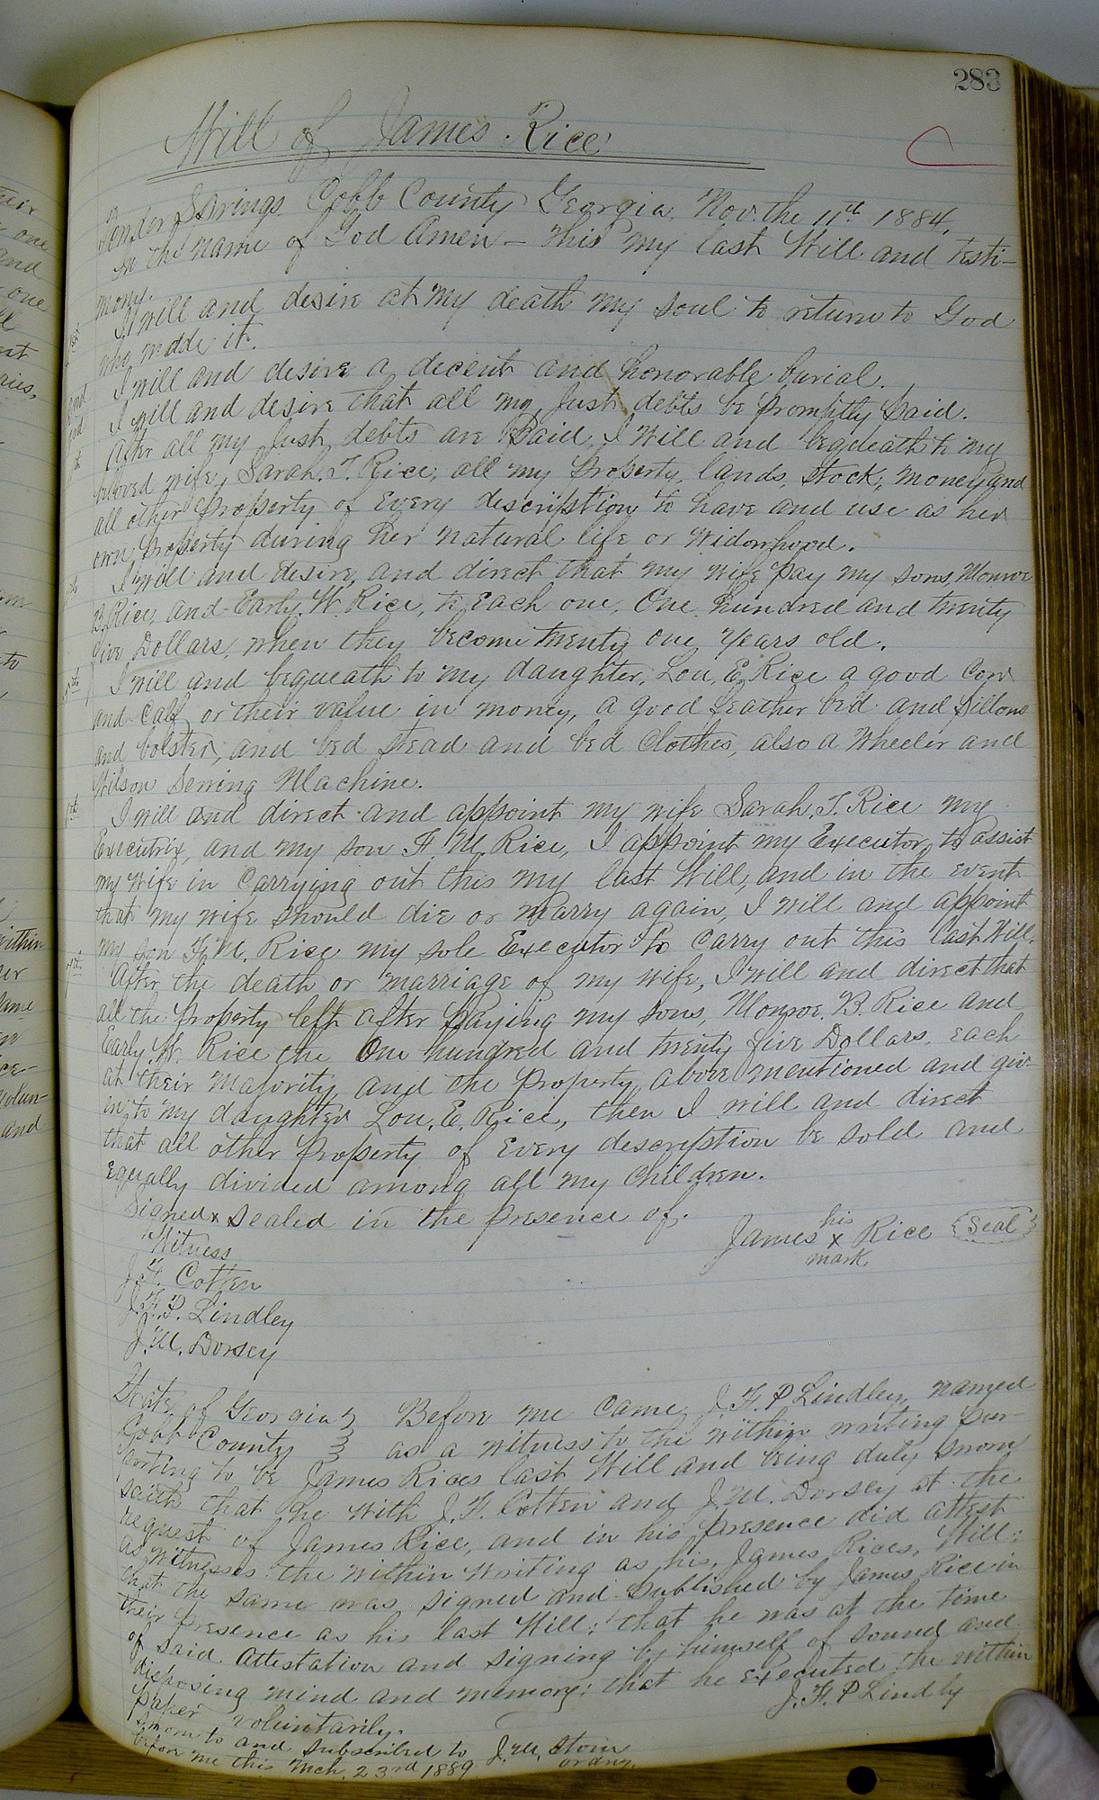 283
Will of James Rice
Powder Springs, Cobb County Georgia, Nov. the 11th 1884.
In the name of God Amen – this my last Will and testi-
mony.
1st I will and desire at my death my soul to return to God
who made it.
I will and desire a decent and honorable burial.
I will and desire that all my just debts be promptly paid.
After all my just debts are paid, I Will and bequeath to my
beloved wife, Sarah. T. Rice, all my property, lands, stock, money and
all other property of every description to have and use as her
own property during her natural life or widowhood.
I will and desire, and direct that my wife pay my sons, Monroe
B. Rice, and Early W. Rice, to Each one, One hundred and twenty
five Dollars, when they become twenty one years old.
I will and bequeath to my daughter, Lou, E. Rice a good Cow
and calf or their value in money, a good feather bed and pillows
and bolster, and bed stead and bed clothes, also a Wheeler and
Wilson Sewing Machine.
I will and direct and appoint my wife Sarah, T. Rice my
Executrix, and my son F. M. Rice, I appoint my Executor, to assist
my wife in carrying out this my last Will, and in the event
that my wife should die or marry again, I will and appoint
my son F. M. Rice my sole Executor to carry out this last Will.
After the death or marriage of my wife, I will and direct that
all the property left after paying my sons, Monroe. B. Rice and
Early. W. Rice the One hundred and twenty five Dollars, each
at their majority, and the property above mentioned and giv-
en to my daughter Lou, E. Rice, then I will and direct
that all other property of every description be sold and
equally divided among all my children.
Signed & sealed in the presence of.
his
James x Rice (Seal)
mark
Witness
J. F. Cotten
J. F. P. Lindley
J. M. Dorsey
State of Georgia } Before me came J. F. P Lindley, named
Cobb County } as a witness to the within writing pur-
porting to be James Rices last Will and being duly sworn
saith that he with J. F. Cotten and J. M. Dorsey at the
request of James Rice, and in his presence did attest
as witnesses the within writing as his, James Rices, Will;
that the same was signed and published by James Rice in
their presence as his last Will; that he was at the time
of said attestation and signing by himself of sound and
disposing mind and memory; that he executed the within
paper voluntarily.
J. F. P Lindly
Sworn to and subscribed to J. M. Stone
before me this Mch. 23rd 1889 ordny.